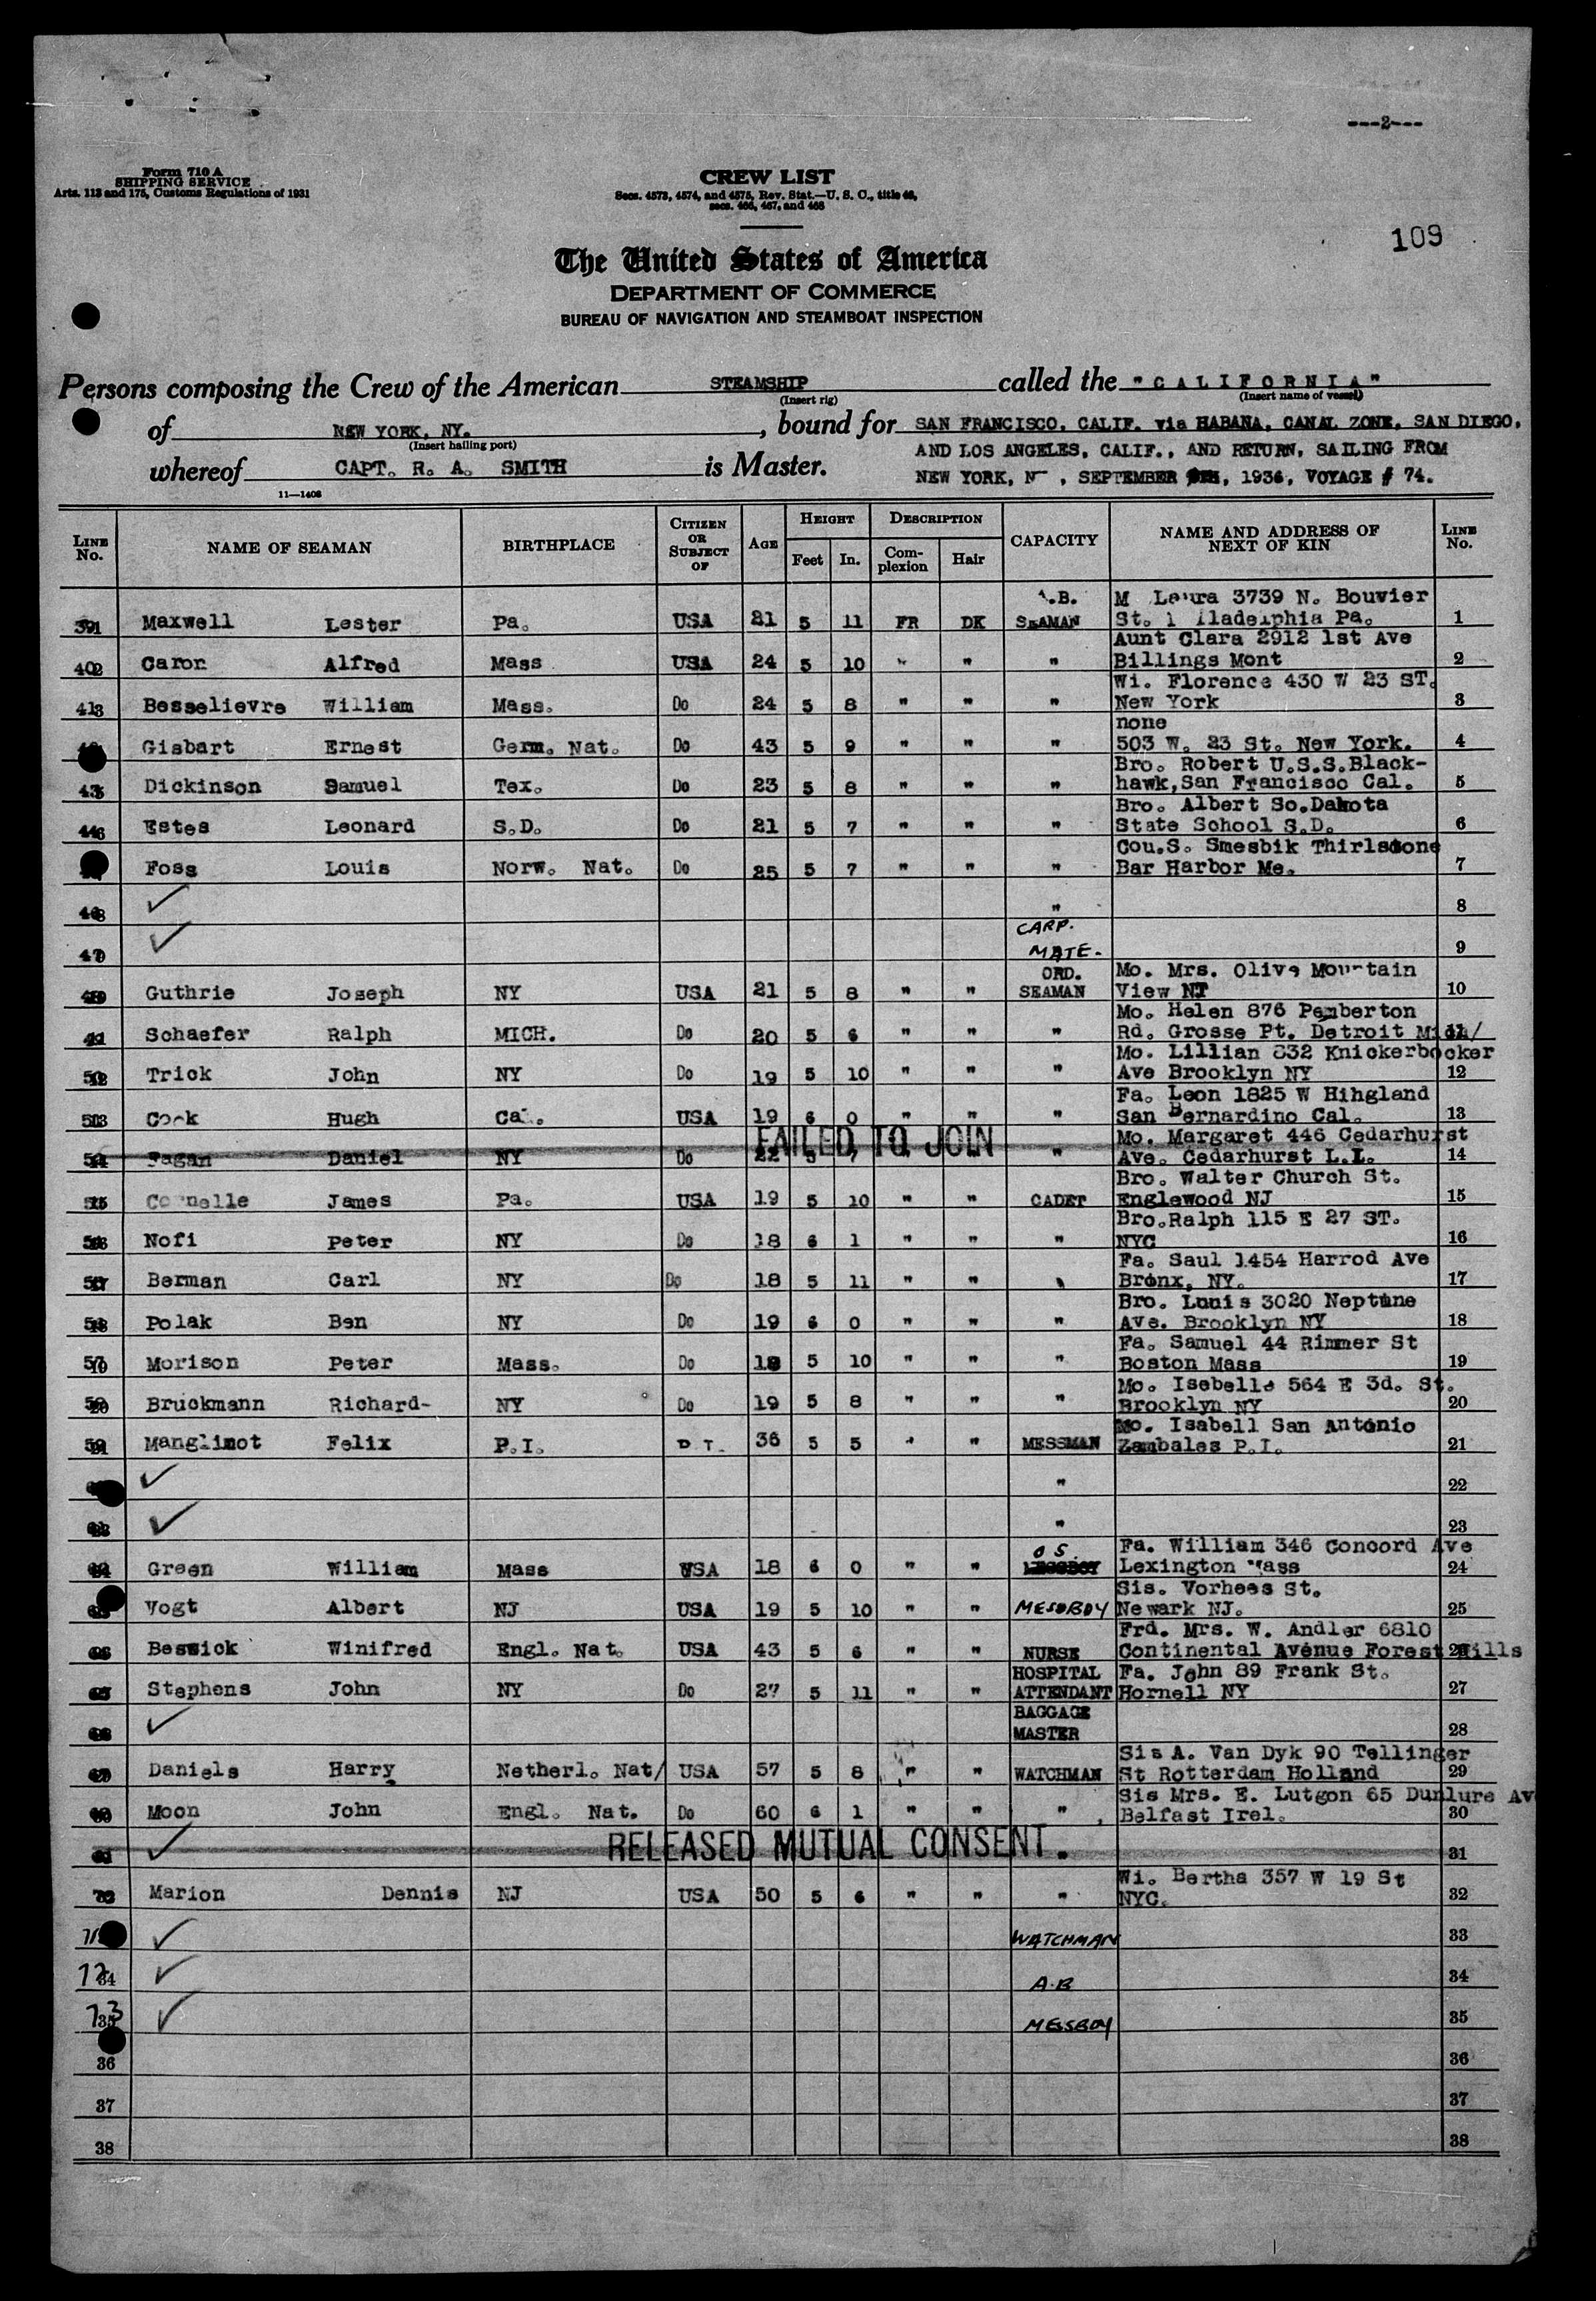 ---2---
Form 710 A
SHIPPING SERVICE
Arts. 113 and 175, Customs Regulations of 1931
CREW LIST
Secs. 4573, 4574, and 4575, Rev. Stat.—U. S. C., title 46,
secs. 466, 467, and 468
109
The United States of America
DEPARTMENT OF COMMERCE
BUREAU OF NAVIGATION AND STEAMBOAT INSPECTION
Persons composing the Crew of the American STEAMSHIP called the "CALIFORNIA"
(Insert rig) (Insert name of vessel)
of NEW YORK, NY. , bound for SAN FRANCISCO, CALIF. via HABANA, CANAL ZONE, SAN DIEGO,
(Insert hailing port)
AND LOS ANGELES, CALIF., AND RETURN, SAILING FROM
whereof CAPT. R. A. SMITH is Master.
NEW YORK, N , SEPTEMBER , 1936, VOYAGE # 74.
11—1408
LINE No. NAME OF SEAMAN BIRTHPLACE CITIZEN OR SUBJECT OF AGE HEIGHT Feet In. DESCRIPTION Complexion Hair CAPACITY NAME AND ADDRESS OF NEXT OF KIN LINE No.
A.B. M Laura 3739 N. Bouvier
39 Maxwell Lester Pa. USA 21 5 11 FR DK SEAMAN St. Pa. 1
Aunt Clara 2912 1st Ave
40 Caron Alfred Mass USA 24 5 10 " " " Billings Mont 2
Wi. Florence 430 W 23 ST.
41 Besselievre William Mass. Do 24 5 8 " " " New York 3
none
Gisbart Ernest Germ. Nat. Do 43 5 9 " " " 503 W. 23 St. New York. 4
Bro. Robert U.S.S.Black-
43 Dickinson Samuel Tex. Do 23 5 8 " " " hawk,San Francisco Cal. 5
Bro. Albert So.Dakota
44 Estes Leonard S.D. Do 21 5 7 " " " State School S.D. 6
Cou.S. Smesbik Thirlstone
Foss Louis Norw. Nat. Do 25 5 7 " " " Bar Harbor Me. 7
46 " 8
CARP.
47 MATE- 9
ORD. Mo. Mrs. Olive Mountain
Guthrie Joseph NY USA 21 5 8 " " SEAMAN View NJ 10
Mo. Helen 876 Pemberton
Schaefer Ralph MICH. Do 20 5 6 " " " Rd. Grosse Pt. Detroit Mich/ 11
Mo. Lillian 832 Knickerbocker
50 Trick John NY Do 19 5 10 " " " Ave Brooklyn NY 12
Fa. Leon 1825 W Hihgland
51 Cook Hugh Cal. USA 19 6 0 " " " San Bernardino Cal. 13
FAILED TO JOIN
Mo. Margaret 446 Cedarhurst
Fagan Daniel NY Do 22 5 7 " Ave. Cedarhurst L.I. 14
Bro. Walter Church St.
James Pa. USA 19 5 10 " " CADET Englewood NJ 15
Bro.Ralph 115 E 27 ST.
Nofi Peter NY Do 18 6 1 " " " NYC 16
Fa. Saul 1454 Harrod Ave
Berman Carl NY Do 18 5 11 " " " Bronx, NY. 17
Bro. Louis 3020 Neptune
Polak Ben NY Do 19 6 0 " " " Ave. Brooklyn NY 18
Fa. Samuel 44 Rimmer St
57 Morison Peter Mass. Do 18 5 10 " " " Boston Mass 19
Mo. Isebelle 564 E 3d. St.
Bruckmann Richard- NY Do 19 5 8 " " " Brooklyn NY 20
Mo. Isabell San Antonio
59 Manglimot Felix P.I. P I. 36 5 5 " " MESSMAN Zambales P.I. 21
" 22
" 23
O S. Fa. William 346 Concord Ave
Green William Mass USA 18 6 0 " " Lexington Mass 24
Sis. Vorhees St.
Vogt Albert NJ USA 19 5 10 " " MESSBOY Newark NJ. 25
Frd. Mrs. W. Andler 6810
Beswick Winifred Engl. Nat. USA 43 5 6 " " NURSE Continental Avenue Forest Hills 26
HOSPITAL Fa. John 89 Frank St.
Stephens John NY Do 27 5 11 " " ATTENDANT Hornell NY 27
BAGGAGE
MASTER 28
Sis A. Van Dyk 90 Tellinger
Daniels Harry Netherl. Nat/ USA 57 5 8 " " WATCHMAN St Rotterdam Holland 29
Sis Mrs. E. Lutgon 65 Dunlure Av
Moon John Engl. Nat. Do 60 6 1 " " " Belfast Irel. 30
RELEASED MUTUAL CONSENT. 31
Wi. Bertha 357 W 19 St
70 Marion Dennis NJ USA 50 5 6 " " " NYC. 32
71 WATCHMAN 33
72 34 A.B 34
73 35 MESSBOY 35
36 36
37 37
38 38